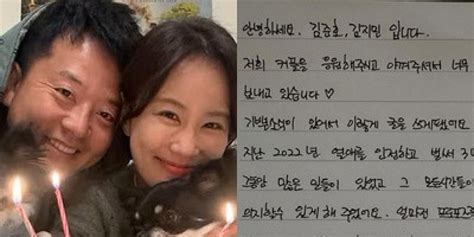 안녕하세요. 김준호, 김지민 입니다.
저희 커플을 응원해주시고 아껴주셔서 너무
보내고 있습니다♡
기쁜 소식이 있어서 이렇게 글을 쓰게됐어요
지난 2022년 열애를 인정하고 벌써
그동안 많은 일들이 있었고 그 모든시간들이
의지할수 있게 해 주었어요. 얼마전 프로포즈